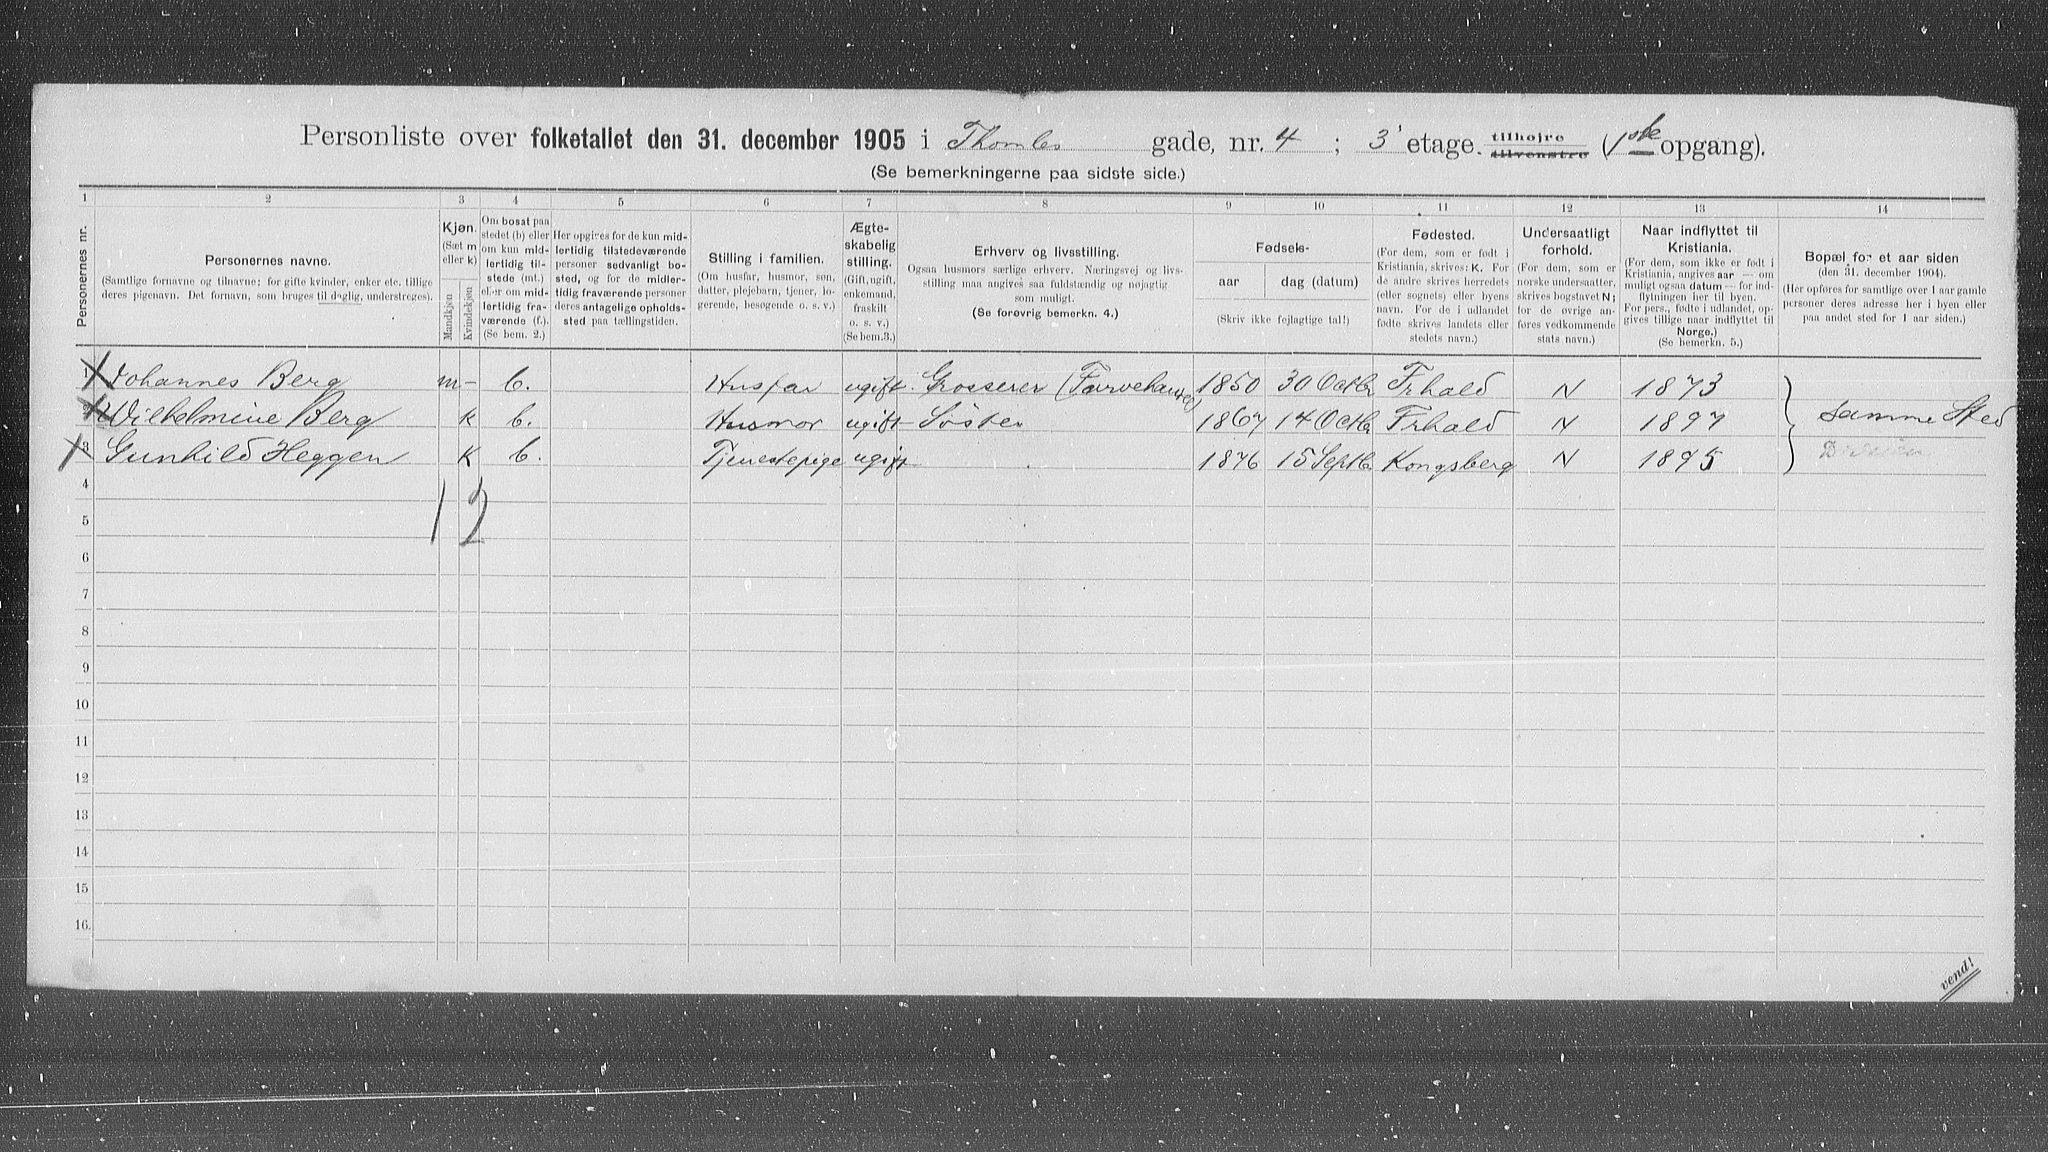 Personliste over folketallet den 31. december 1905 i Thomles gade, nr. 4 ; 3' etage. tilhøjre tilvenstre (1ste opgang).
(Se bemerkningerne paa sidste side.)
1 2 3 4 5 6 7 8 9 10 11 12 13 14
Personernes nr.
Personernes navne.
(Samtlige fornavne og tilnavne; for gifte kvinder, enker etc. tillige
deres pigenavn. Det fornavn, som bruges til daglig, understreges).
Kjøn.
(Sæt m
eller k)
Mandkjøn
Kvindekjøn
Om bosat paa
stedet (b) eller
om kun mid-
lertidig til-
stede (mt.)
eller om mid-
lertidig fra-
værende (f.).
(Se bem. 2.)
Her opgives for de kun mid-
lertidig tilstedeværende
personer sedvanligt bo-
sted, og for de midler-
tidig fraværende personer
deres antagelige opholds-
sted paa tællingstiden.
Stilling i familien.
(Om husfar, husmor, søn,
datter, plejebarn, tjener, lo-
gerende, besøgende o. s. v.)
Ægte-
skabelig
stilling.
(Gift, ugift,
enkemand,
fraskilt
o. s. v.)
(Se bem. 3.)
Erhverv og livsstilling.
Ogsaa husmors særlige erhverv. Næringsvej og livs-
stilling maa angives saa fuldstændig og nøjagtig
som muligt.
(Se forøvrig bemerkn. 4.)
Fødsels-
aar dag (datum)
(Skriv ikke fejlagtige tal!)
Fødested.
(For dem, som er født i
Kristiania, skrives: K. For
de andre skrives herredets
(eller sognets) eller byens
navn. For de i udlandet
fødte skrives landets eller
stedets navn.)
Undersaatligt
forhold.
(For dem, som er
norske undersaatter,
skrives bogstavet N;
for de øvrige an-
føres vedkommende
stats navn.)
Naar indflyttet til
Kristiania.
(For dem, som ikke er født i
Kristiania, angives aar — om
muligt ogsaa datum — for ind-
flytningen her til byen.
For pers., fødte i udlandet, op-
gives tillige naar indflyttet til
Norge.)
(Se bemerkn. 5.)
Bopæl for et aar siden
(den 31. december 1904).
(Her opføres for samtlige over 1 aar gamle
personer deres adresse her i byen eller
paa andet sted for 1 aar siden.)
1 Johannes Berg m- b. Husfar ugift. Grosserer (Farvehandel) 1850 30 Octbr Frhald N 1873
2 Wilhelmine Berg k b. Husmor ugift Søster 1867 14 Octbr Frhald N 1897 Samme Sted
3 Gunhild Heggen K b. Tjenestepige ugift 1876 15 Septbr Kongsberg N 1895
4
5 1 2
6
7
8
9
10
11
12
13
14
15
16.
vend!